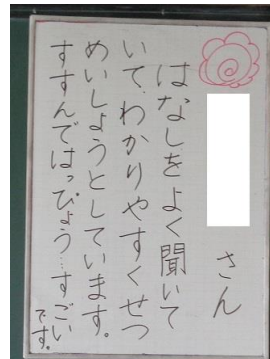 さん
はなしをよく聞いて
いて、わかりやすくせつ
めいしようとしています。
すすんではっぴょう…すごい
です。